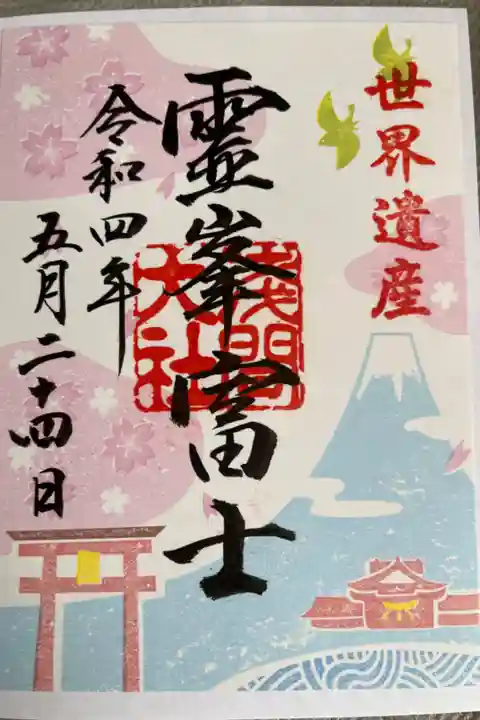 世界遺産
靈峯富士
浅間
大社
令和四年
五月二十四日